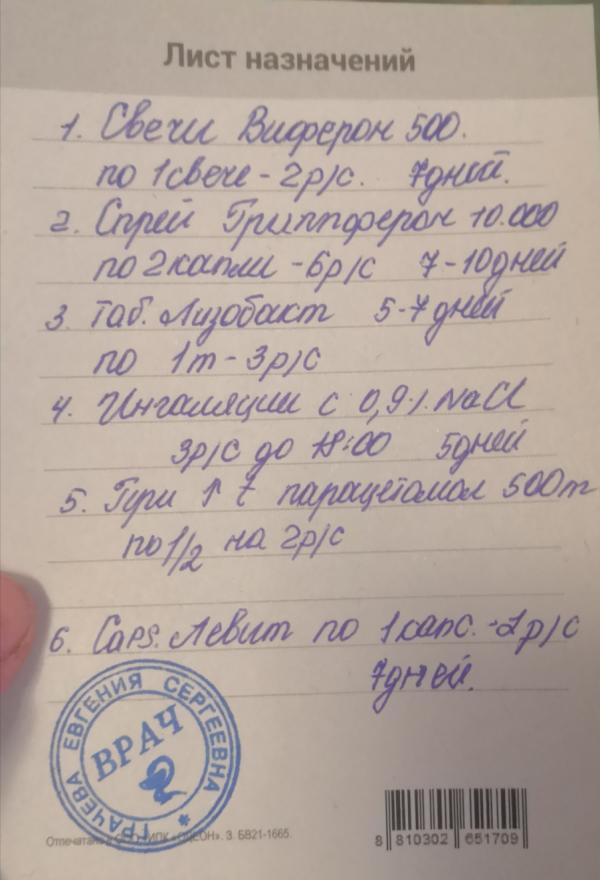 Лист назначений
1. Свечи Виферон 500.
по 1свече - 2р/с. 7дней.
2. Спрей Гриппферон 10.000
по 2капли - 6р/с 7-10дней
3. Таб. Лизобакт 5-7дней
по 1т - 3р/с
4. Ингаляции с 0,9%. NaCl
3р/с до 18:00 5дней
5. При ↑ t парацетомол 500m
по 1/2 на 2р/с
6. Caps. Левит по 1капс. - 2р/с
7дней.
ГРАЧЕВА ЕВГЕНИЯ СЕРГЕЕВНА *
ВРАЧ
Отпечатано в ООО «ИПК «ОДЕОН». З. БВ21-1665.
8 810302 651709